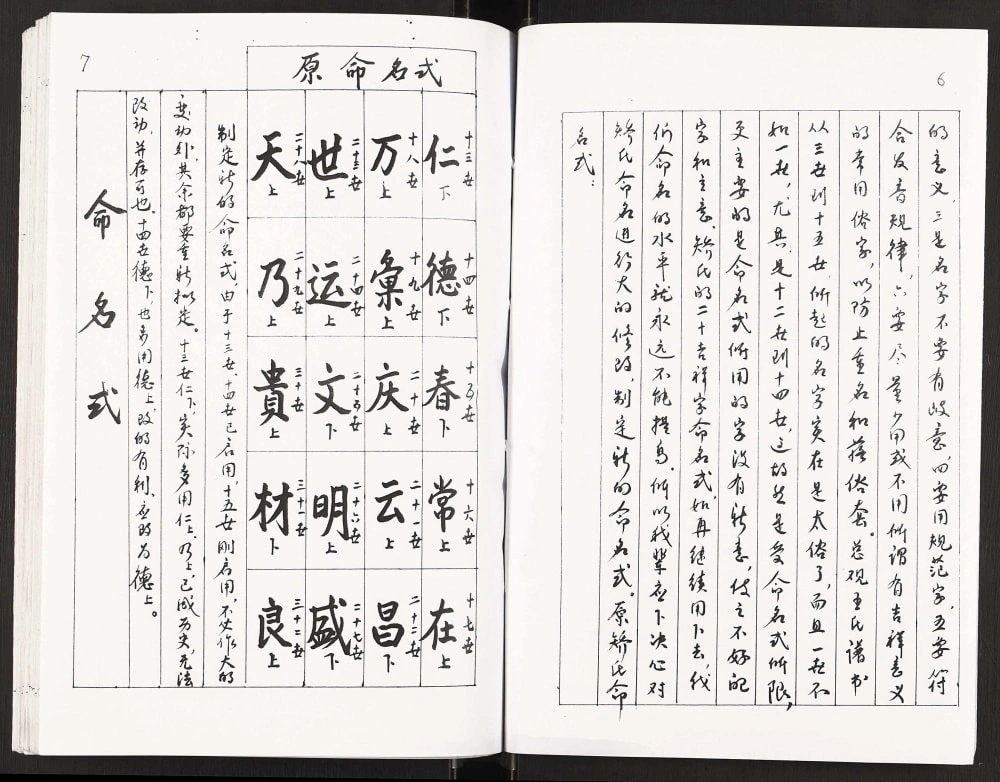 6
的意义，三是名字不要有歧意，四要用规范字，五要符
合发音规律，六要尽量少用或不用所谓有吉祥意义
的常用俗字，以防止重名和落俗套。总观王氏谱书
从三世到十五世，所起的名字实在是太俗了，而且一世不
如一世，尤其是十二世到十四世，这故然是受命名式所限，
更主要的是命名式所用的字没有新意，使之不好配
字和立意。矫氏的二十吉祥字命名式，如再继续用下去，我
们命名的水平就永远不能提高。所以我辈应下决心对
矫氏命名进行大的修改，制定新的命名式。原矫氏命
名式：
7
原命名式
十三世 仁 下
十四世 德 下
十五世 春 下
十六世 常 上
十七世 在 上
十八世 万 上
十九世 彙 上
二十世 庆 上
二十一世 云 上
二十二世 昌 下
二十三世 世 上
二十四世 运 上
二十五世 文 下
二十六世 明 上
二十七世 盛 下
二十八世 天 上
二十九世 乃 上
三十世 貴 上
三十一世 材 下
三十二世 良 上
制定新的命名式，由于十三世、十四世已启用，十五世刚启用，不必作大的
变动外，其余都要重新拟定。十三世仁下，实际多用仁上，乃上已成历史，无法
改动，并存可也。十四世德下也多用德上，改的有利，应改为德上。
命名式